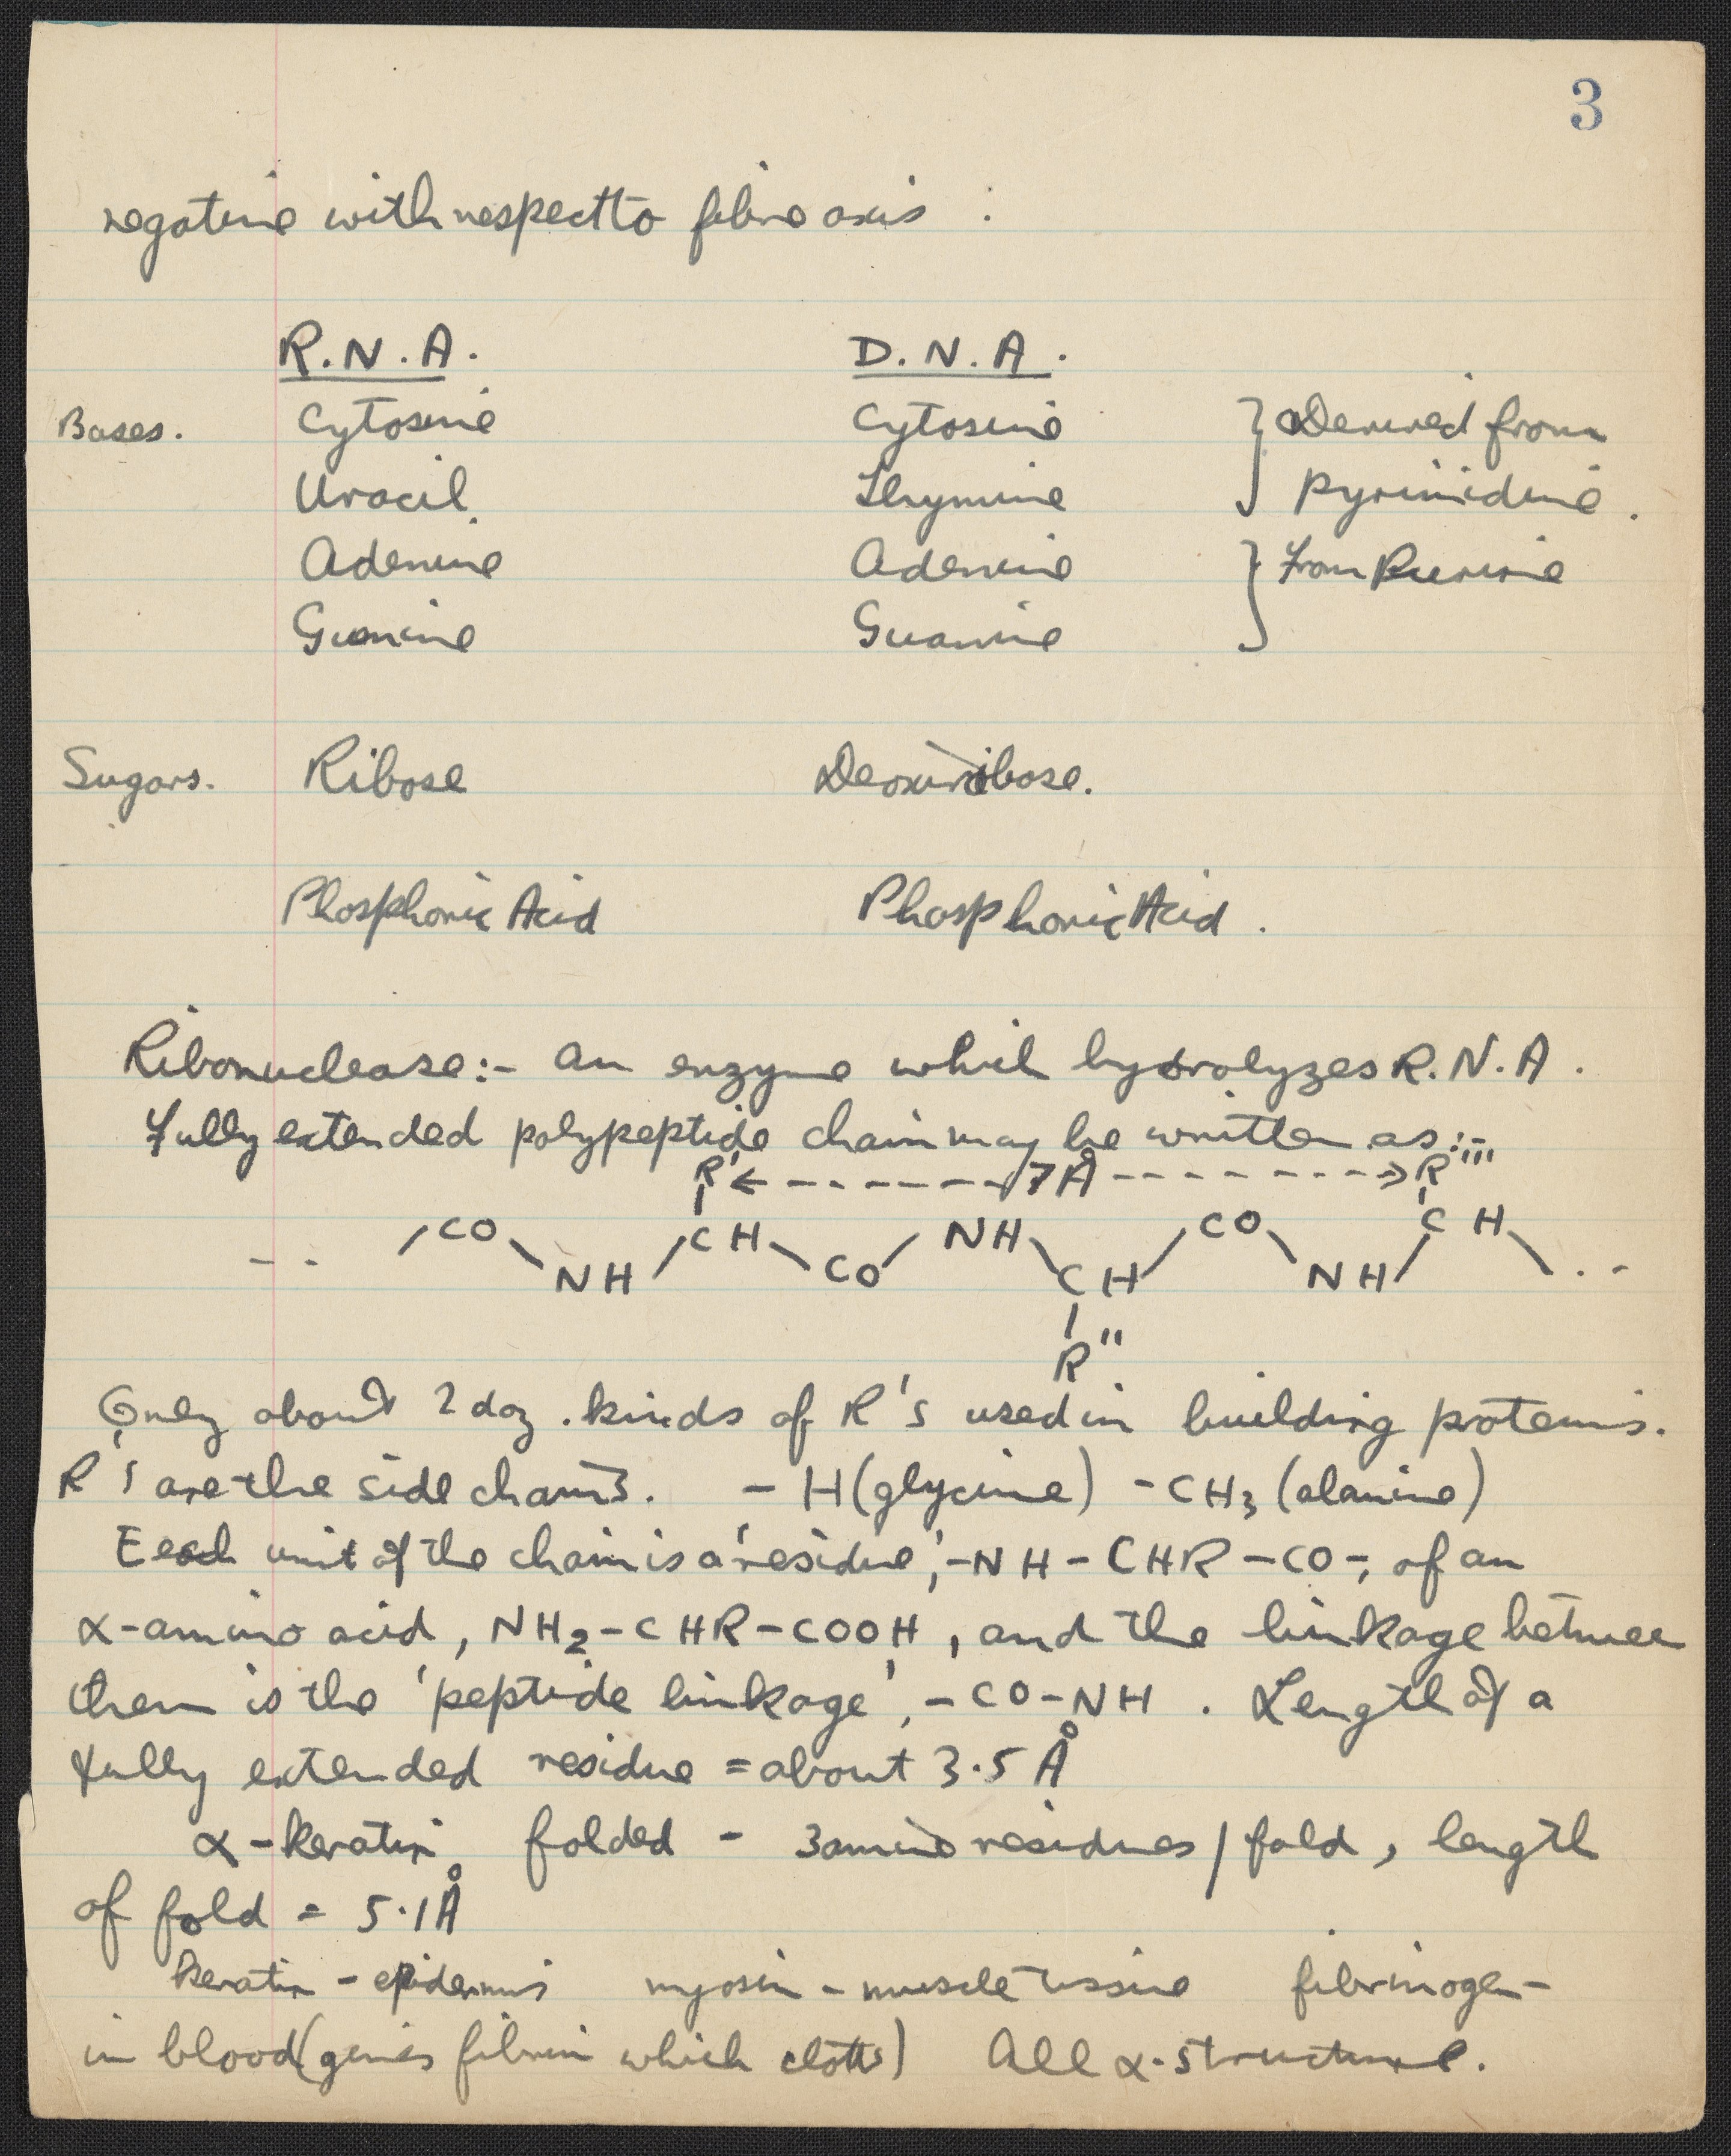 3
negative with respect to fibre axis :
R.N.A. D.N.A.
Bases. Cytosine Cytosine } Derived from
Uracil. Thymine pyrimidine.
Adenine Adenine } from Purine
Guanine Guanine
Sugars. Ribose Deoxyribose.
Phosphoric Acid Phosphoric Acid.
Ribonuclease:- an enzyme which hydrolyzes R.N.A.
Fully extended polypeptide chain may be written as:-
R' <------ 7Å ------> R'''
-- / CO \ NH / CH \ CO / NH \ CH / CO \ NH / CH \ . --
R''
Only about 2 doz. kinds of R's used in building proteins.
R's are the side chains. - H (glycine) - CH₃ (alanine)
Each unit of the chain is a 'residue', -NH-CHR-CO-, of an
α-amino acid, NH₂-CHR-COOH, and the linkage between
them is the 'peptide linkage', -CO-NH. Length of a
fully extended residue = about 3.5 Å
α-keratin folded - 3 amino residues / fold, length
of fold = 5.1 Å
keratin - epidermis myosin - muscle tissue fibrinogen -
in blood (gives fibrin which clotts) All α-structure.